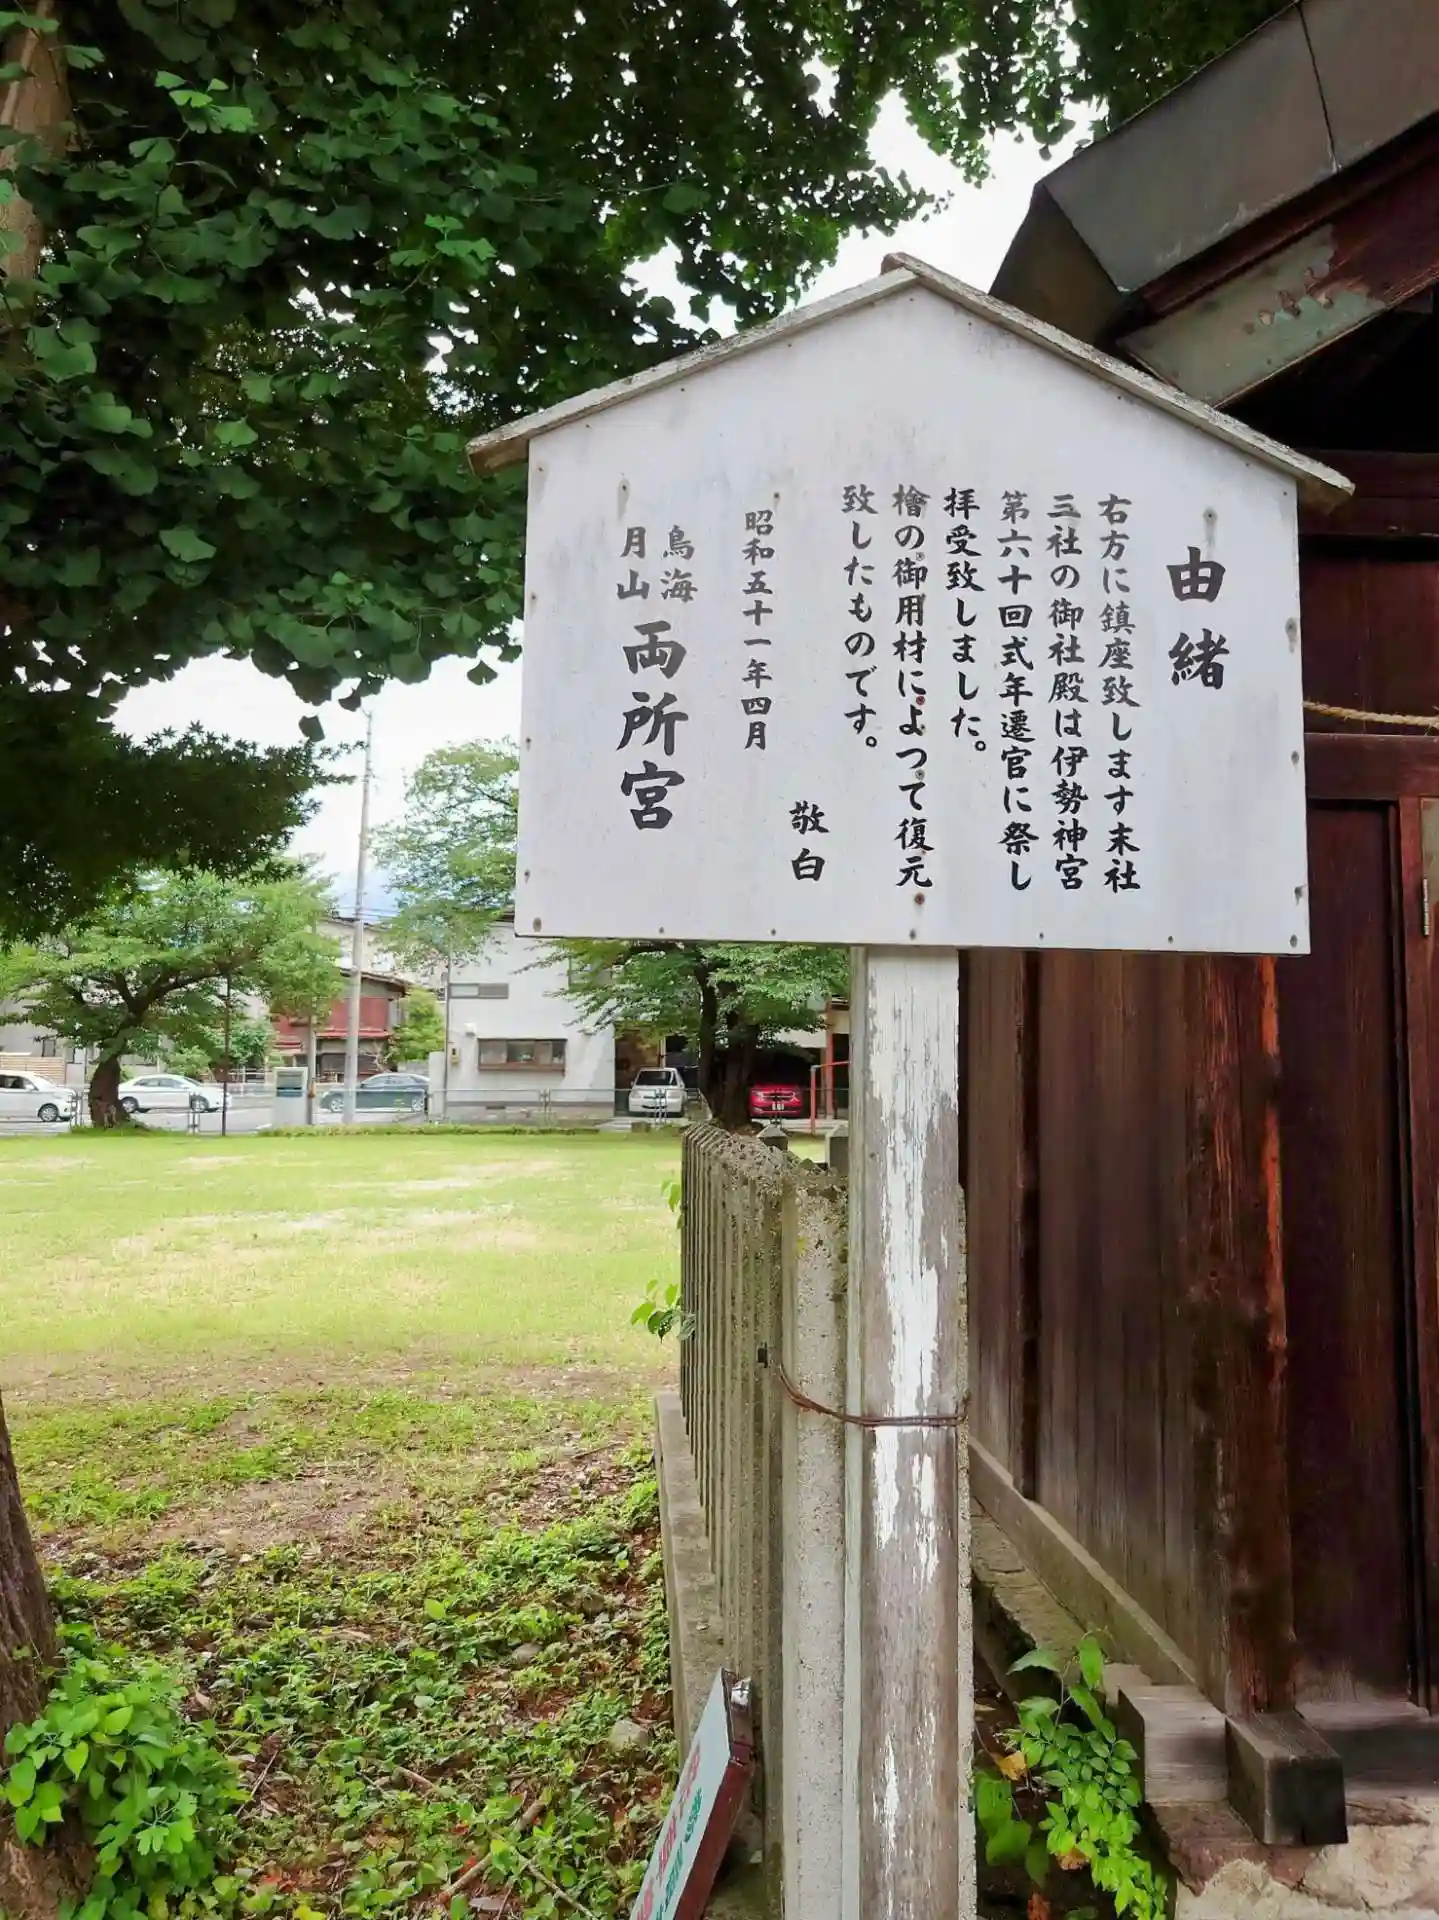 由緒
右方に鎮座致します末社
三社の御社殿は伊勢神宮
第六十回式年遷宮に祭し
拝受致しました。
檜の御用材によつて復元
致したものです。
敬白
昭和五十一年四月
鳥海
月山
両所宮